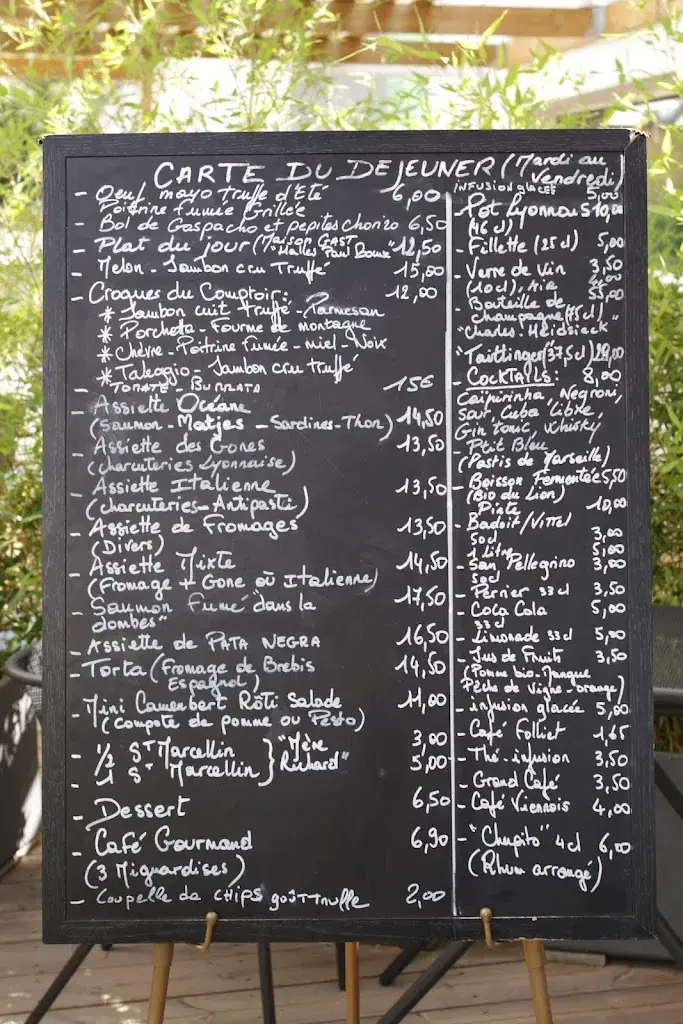 CARTE DU DEJEUNER (Mardi au Vendredi)
- Oeuf mayo truffe d'Été 6,00
Poitrine fumée Grillée
- Bol de Gaspacho et pepites chorizo 6,50
- Plat du jour (Maison GAST "Halles Paul Bocuse" 12,50
- Melon - Jambon cru Truffé 15,00
- Croques du Comptoir: 12,00
* Jambon cuit truffé - Parmesan
* Porcheta - Fourme de montagne
* Chèvre - Poitrine fumée - miel - Noix
* Taleggio - Jambon cru truffé
- TOMATE - BURRATA 15€
- Assiette Océane 14,50
(Saumon - Matjes - Sardines - Thon)
- Assiette des Gones 13,50
(charcuteries Lyonnaise)
- Assiette Italienne 13,50
(charcuteries - Antipasti)
- Assiette de Fromages 13,50
(Divers)
- Assiette Mixte 14,50
(Fromage + Gone où Italienne)
- Saumon Fumé "dans la 17,50
dombes"
- Assiette de PATA NEGRA 16,50
- Torta (Fromage de Brebis 14,50
Espagnol)
- Mini Camembert Rôti Salade 11,00
(compote de pomme ou Pesto)
- 1/2 ST Marcellin 3,00
- 1 ST Marcellin } "Mère Richard" 5,00
- Dessert 6,50
- Café Gourmand 6,90
(3 Mignardises)
- Coupelle de CHIPS goût truffe 2,00
INFUSION GLACÉE 5,00
- Pot Lyonnais 10,00
(46 cl)
- Fillette (25 cl) 5,00
- Verre de Vin 3,50
(10 cl),
- Bouteille de 55,00
Champagne (75 cl)
"Charles Heidsieck"
"Taittinger (37,5 cl) ,00
- COCKTAILS: 8,00
Caipirinha, Negroni,
Cuba Libre,
Gin tonic, Whisky
- Ptit Bleu
(Pastis de Marseille)
- Boisson Fermentée 5,50
(Bio du Lion)
Pinte 10,00
- Badoit/Vittel
50cl 3,00
1 litre 5,00
- San Pellegrino 3,00
50cl
- Perrier 33 cl 3,50
- Coca Cola 5,00
33 cl
- Limonade 33 cl 5,00
- Jus de Fruits 3,50
(Pomme bio - Mangue
Pêche de Vigne - orange)
- infusion glacée 5,00
- Café Folliet 1,65
- Thé - infusion 3,50
- Grand Café 3,50
- Café Viennois 4,00
- "Chupito" 4cl 6,00
(Rhum arrangé)